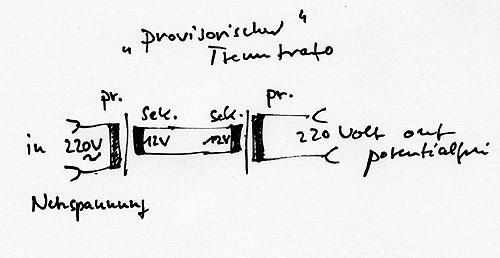 "provisorischer"
Trenntrafo
pr. pr.
sek. sek.
in 220V 12V 12V 220 Volt out
~ potentialfrei
Netzspannung